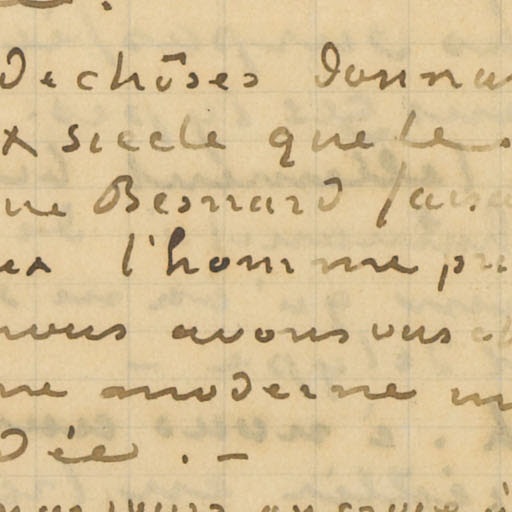 de chôses donna
x siecle que le
ne Besnard fana
ex l'homme pri
nous avons vus ab
ne moderne m
Dée . –